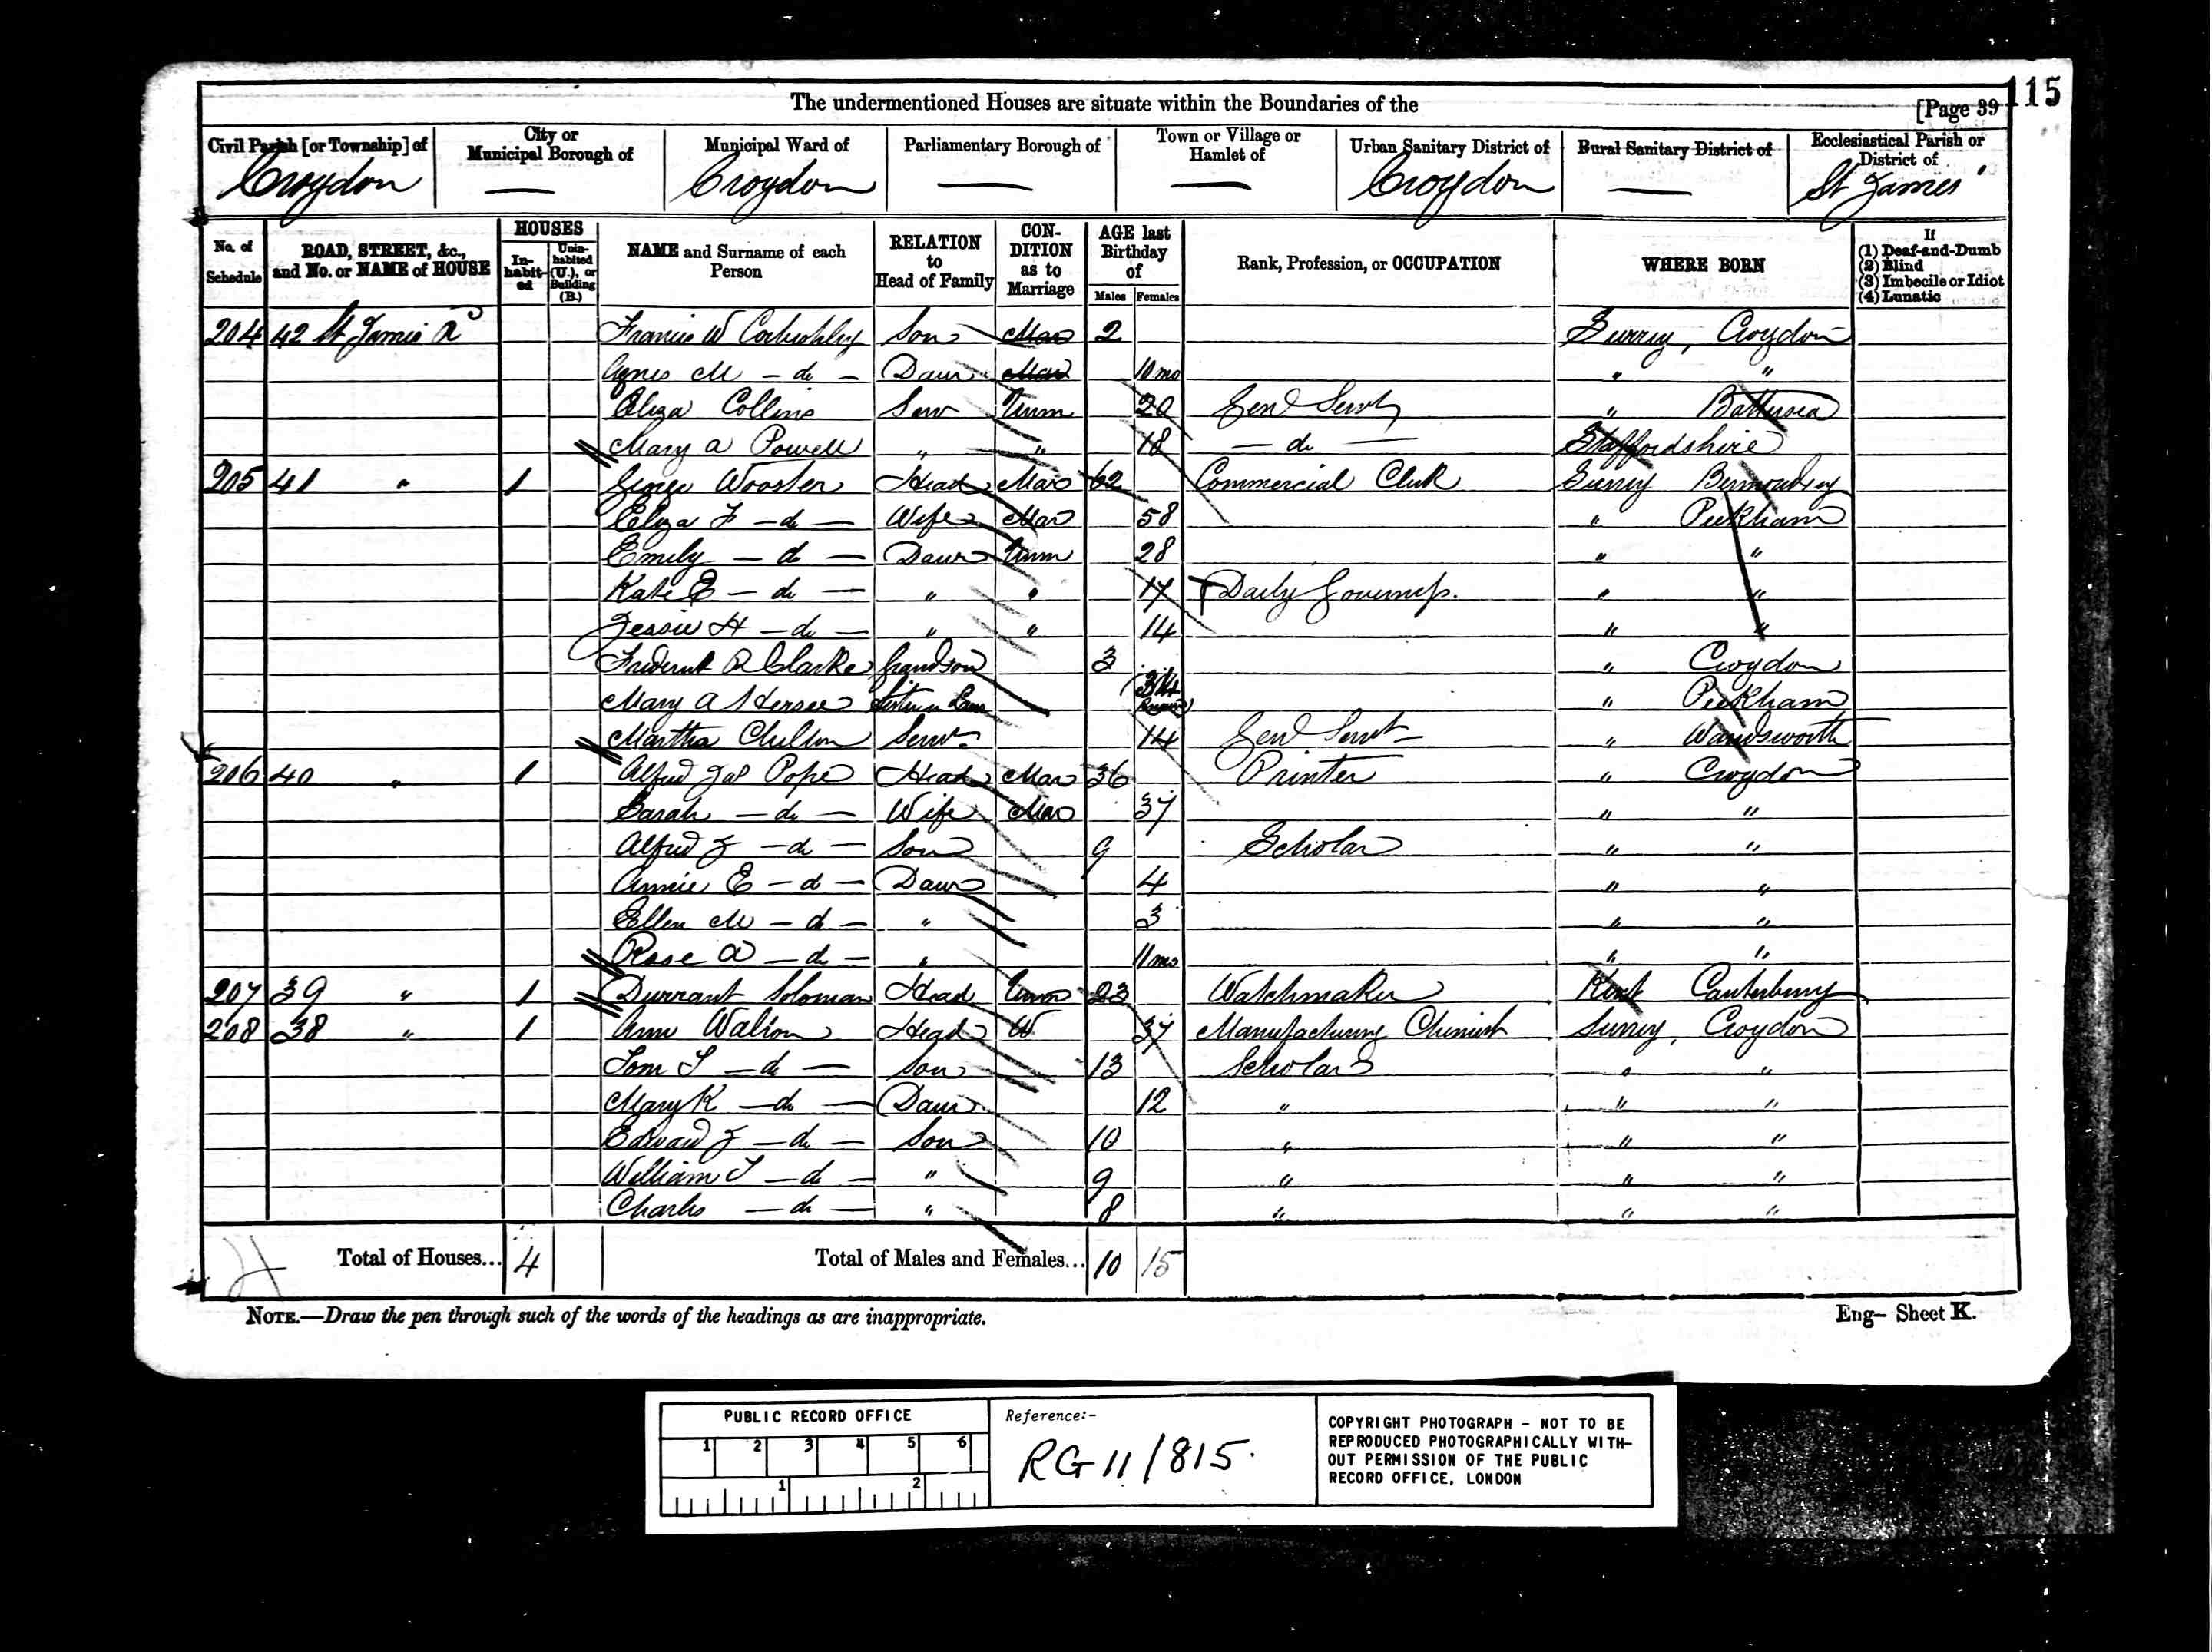 115
The undermentioned Houses are situate within the Boundaries of the [Page 39
Civil Parish [or Township] of Croydon
City or Municipal Borough of —
Municipal Ward of Croydon
Parliamentary Borough of —
Town or Village or Hamlet of —
Urban Sanitary District of Croydon
Rural Sanitary District of —
Ecclesiastical Parish or District of St James'
No. of Schedule
ROAD, STREET, &c., and No. or NAME of HOUSE
HOUSES
In-habit-ed
Unin-habited (U.), or Building (B.)
NAME and Surname of each Person
RELATION to Head of Family
CON-DITION as to Marriage
AGE last Birthday of
Males Females
Rank, Profession, or OCCUPATION
WHERE BORN
If
(1) Deaf-and-Dumb
(2) Blind
(3) Imbecile or Idiot
(4) Lunatic
204 42 St James Francis W Son Mar 2 Surrey, Croydon
Agnes M — do — Daur Mar 11 mo " "
Eliza Collins Serv Unm 20 Genl Servt " Battersea
Mary A Powell " " 18 — do — Staffordshire
205 41 " 1 George Wooster Head Mar 62 Commercial Clerk Surrey Bermondsey
Eliza F — do — Wife Mar 58 " Peckham
Emily — do — Daur Unm 28 " "
Kate E — do — " " 17 Daily Governess. " "
Jessie H — do — " " 14 " "
Frederick R Clarke Grandson 3 " Croydon
Mary A Hersee Sister in Law 34 " Peckham
Martha Serv 14 Genl Servt " Wandsworth
206 40 " 1 Alfred Jas Pope Head Mar 36 Printer " Croydon
Sarah — do — Wife Mar 37 " "
Alfred J — do — Son 9 Scholar " "
Annie E — do — Daur 4 " "
Ellen M — do — " 3 " "
Rose A — do — " 11 mo " "
207 39 " 1 Durrant Soloman Head Unm 23 Watchmaker Kent Canterbury
208 38 " 1 Ann Walton Head W 37 Manufacturing Chemist Surrey, Croydon
Tom S — do — Son 13 Scholar " "
Mary K — do — Daur 12 " " "
Edward J — do — Son 10 " " "
William S — do — " 9 " " "
Charles — do — " 8 " " "
Total of Houses... 4 Total of Males and Females... 10 15
NOTE.—Draw the pen through such of the words of the headings as are inappropriate. Eng– Sheet K.
PUBLIC RECORD OFFICE
1 2 3 4 5 6
1 2
Reference:-
RG 11/815.
COPYRIGHT PHOTOGRAPH – NOT TO BE
REPRODUCED PHOTOGRAPHICALLY WITH-
OUT PERMISSION OF THE PUBLIC
RECORD OFFICE, LONDON